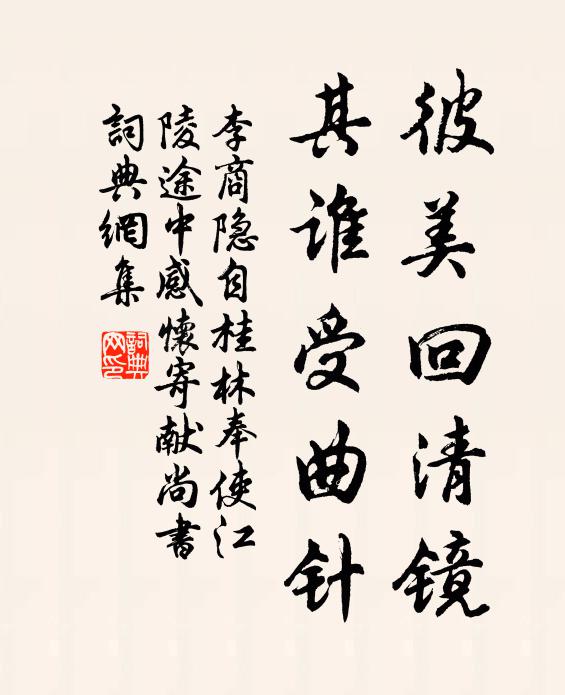 彼美回清镜
其谁受曲针
李商隐自桂林奉使江
陵途中感懷寄献尚書
詞典網集
詞典
网印